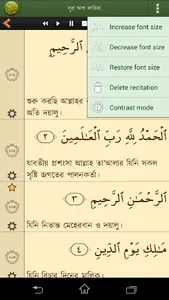 সূরা আল ফাতিহা
Increase font size
Decrease font size
Restore font size
Delete recitation
Contrast mode
ٱلرَّحِيمِ
শুরু করছি আল্লাহর
অতি দয়ালু।
ٱلْحَمْدُ لِلَّهِ رَبِّ ٱلْعَـٰلَمِينَ ﴿٢﴾
যাবতীয় প্রশংসা আল্লাহ তা'আলার যিনি সকল
সৃষ্টি জগতের পালনকর্তা।
ٱلرَّحْمَـٰنِ ٱلرَّحِيمِ ﴿٣﴾
যিনি নিতান্ত মেহেরবান ও দয়ালু।
مَـٰلِكِ يَوْمِ ٱلدِّينِ ﴿٤﴾
যিনি বিচার দিনের মালিক।